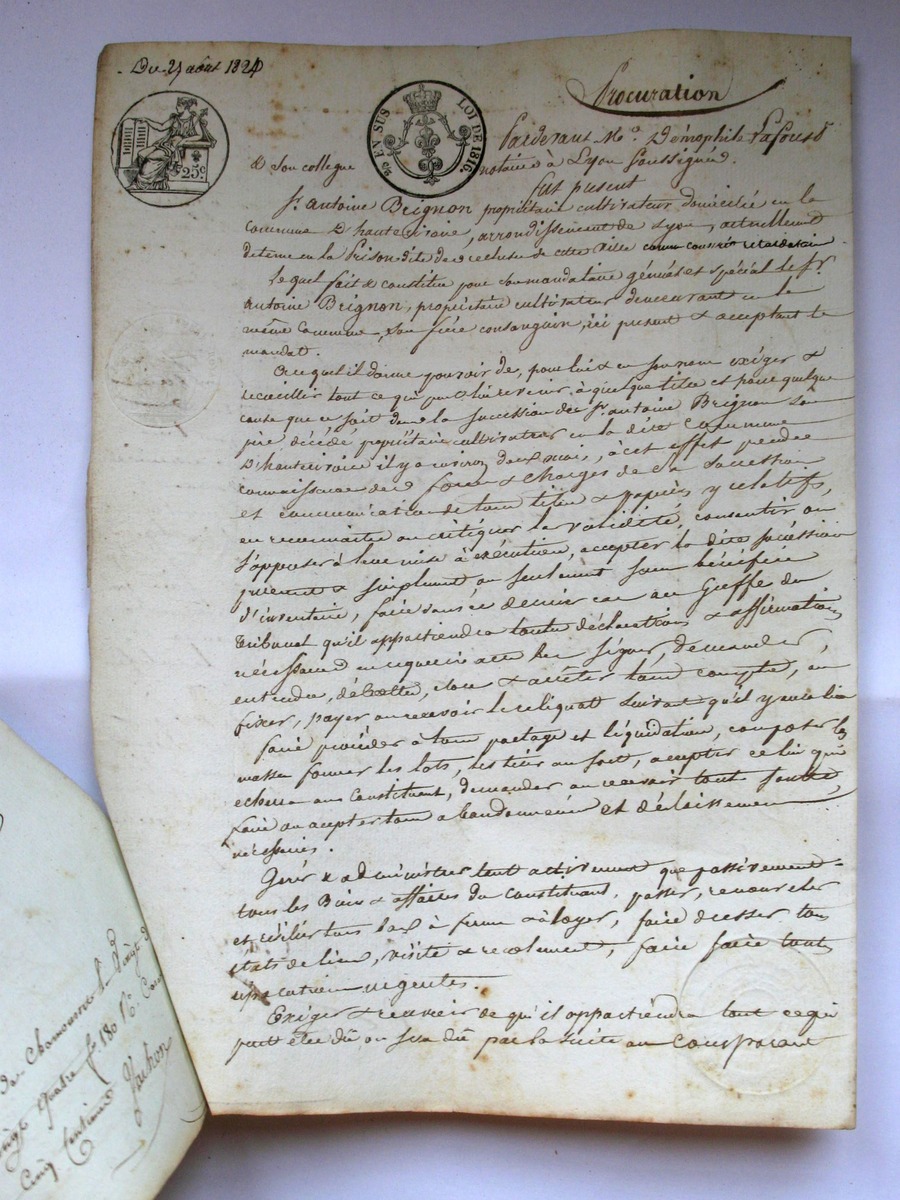 Du 27 août 1824
Procuration
25c
2e EN SUS LOI DE 1816.
Pardevant Me Démophile Lafont
& Son collegue notaires à Lyon Soussignés.
fut présent
Sr. Antoine Brignon propriétaire cultivateur domicilié en la
Commune D'hauterivoire, arrondissement de Lyon, actuellement
detenu en la Prison dite de de cette Ville comme conscrit retardataire
Lequel fait & constitue pour Son mandataire général et spécial le Sr.
Antoine Brignon, propriétaire cultivateur demeurant en la
même Commune, Son frère consanguin, ici present & acceptant le
mandat.
Auquel il donne pouvoir de, pour lui & en Son nom exiger &
recueillir tout ce qui peut lui revenir à quelque titre et pour quelque
cause que ce soit dans la succession du Sr. Antoine Brignon Son
père décédé propriétaire cultivateur en la dite Commune
D'hauterivoire il y a environ deux mois, à cet effet prendre
connaissance des forces & charges de la Succession
et communication de tous titres & papiers y relatifs,
en reconnaitre ou critiquer la validité, consentir ou
S'opposer à leur mise à exécution, accepter la dite succéssion
purement & simplement ou seulement sous bénéfice
d'inventaire, faire dans ce dernier cas au Greffe du
Tribunal qu'il appartiendra toutes déclarations & affirmations
nécessaires en requerir acte les signer, demander,
entendre, débattre, clore & arrêter tous comptes, en
fixer, payer ou recevoir le reliquat Suivant qu'il y aura lieu
faire procéder à tous partage et liquidation, composer les
masses former les lots, les tirer au sort, accepter celui qui
echerra au Constituant, demander ou recevoir tout soulte
faire ou accepter tous abandonnemens et délaissemens
nécessaires.
Gérer & administrer tant activement que passivement
tous les Biens & affaires du Constituant, passer, renouveler
et résilier tous baux à ferme & à loyer, faire dresser tous
états de lieux, visite & recolement, faire faire toutes
réparations urgentes.
Exiger & recevoir de qu'il appartiendra tout ce qui
peut être dû ou sera dû par la suite au Comparant
de Chamousset le Vingt
Vingt quatre f 180
Cinq Centimes